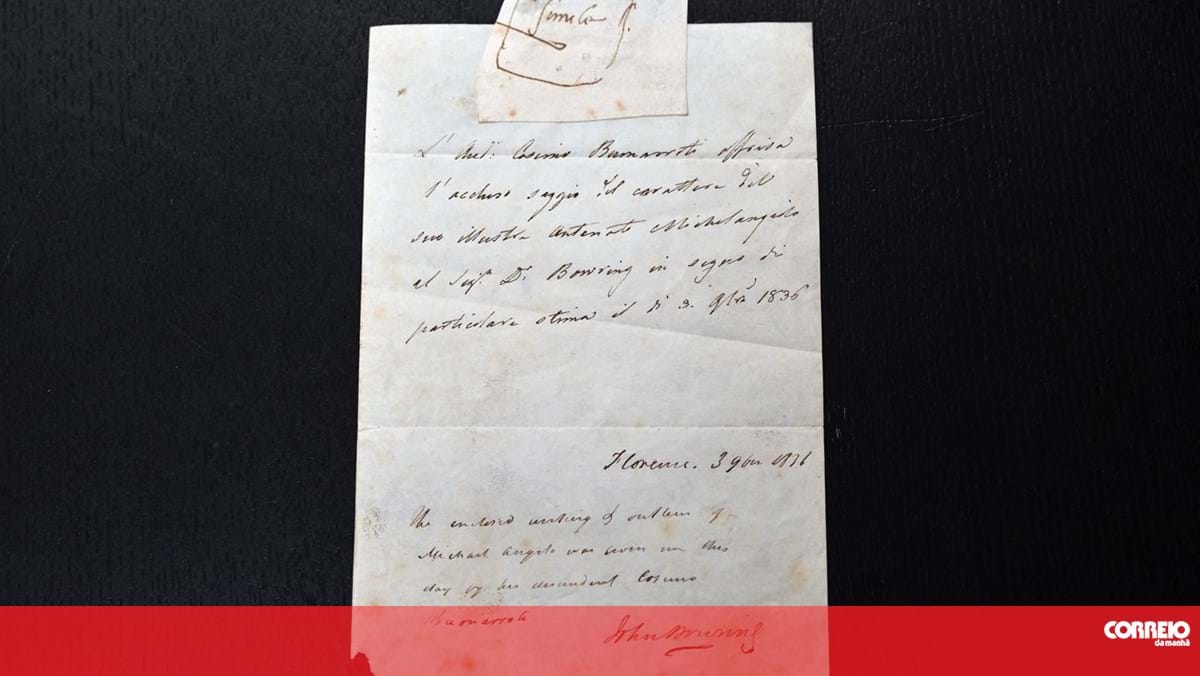 simile
L' Aud: Cosimo Buonarroti offriva
l'accluso saggio del carattere del
suo illustre antenato Michelangiolo
al Sigr. Dr. Bowring in segno di
particolare stima il dì 3. 9bre 1836
Florence. 3 9ber 1836
The enclosed writing & outlines of
Michael Angelo was given me this
day by his descendent Cosimo
Buonarroti
John Bowring
CORREIO
da manhã